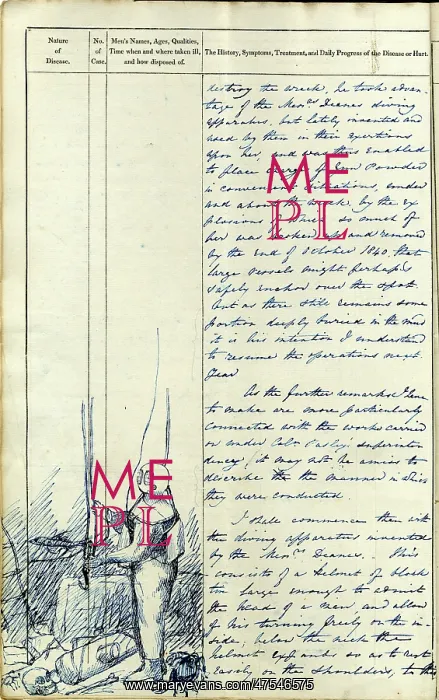 Nature of Disease.
No. of Case.
Men's Names, Ages, Qualities, Time when and where taken ill, and how disposed of.
The History, Symptoms, Treatment, and Daily Progress of the Disease or Hurt.
destroy the wreck, he took advan-
tage of the Messrs Deanes diving
apparatus, but lately invented and
used by them in their exertions
upon her, and was thus enabled
to place charges of Gun Powder
in convenient situations, under
and about the wreck, by the ex
plosions of which so much of
her was broken up and removed
by the end of October 1840, that
large vessels might perhaps
safely anchor over the spot
but as there still remains some
portion deeply buried in the mud
it is his intention I understand
to resume the operations next
Year
As the further remarks I have
to make are more particularly
connected with the works carried
on under Colo. Pasley's superinten
dency, it may not be amiss to
describe the manner in which
they were conducted.
I shall commence then with
the diving apparatus invented
by the Messrs Deanes. This
consists of a helmet of block
tin large enough to admit
the head of a man, and allow
of his turning freely on the in-
side, below the neck the
helmet expands so as to rest
easily on the shoulders, to the
ME
PL
ME
PL
www.maryevans.com/47546575